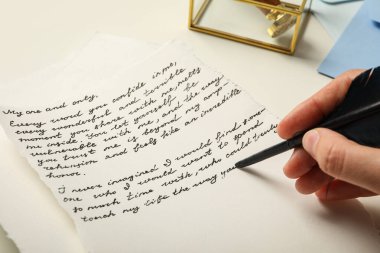 My one and only,
Every word you confide in me,
every wonderful and terrible
moment you share with me, melts
me inside. You let yourself be
vulnerable with me, and the way
you trust me is best and my
and feels like an incredible
honor.
I never imagined I would find some-
one who I would want to spend
so much time with, who could truly
touch my life the way you